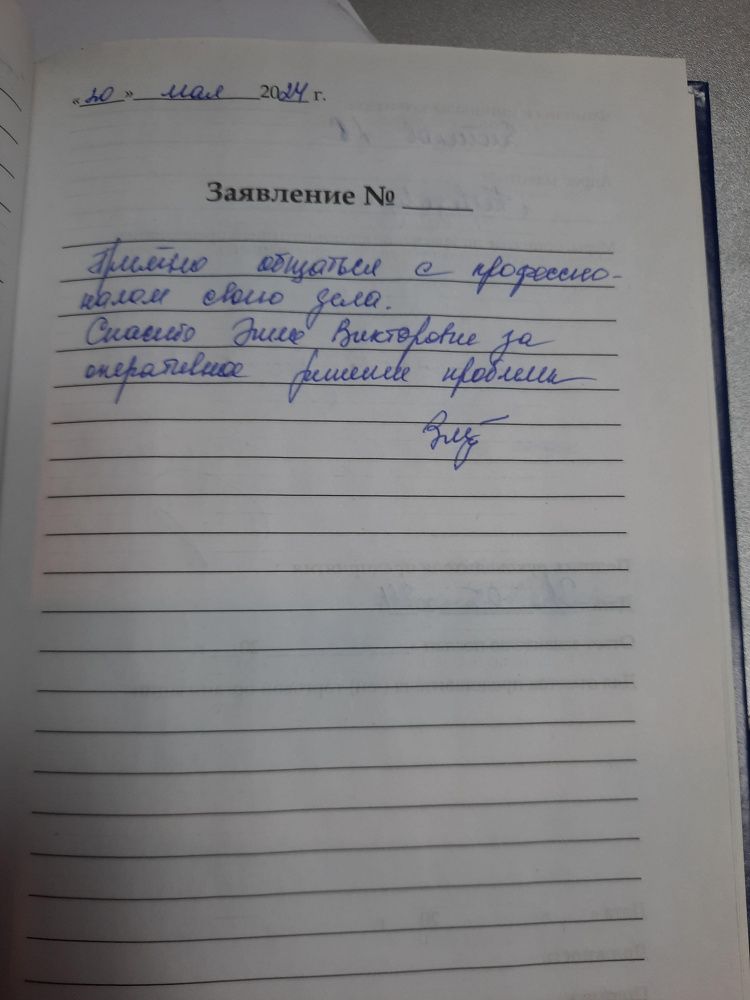 «20» мая 2024 г.
Заявление №
Приятно общаться с профессио-
налом своего дела.
Спасибо Викторовне за
оперативное решение проблемы